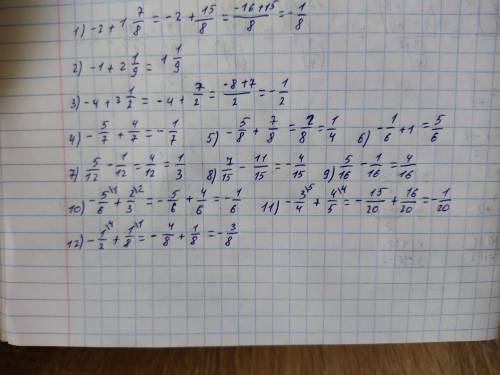 1) -2 + 1 7/8 = -2 + 15/8 = (-16+15)/8 = -1/8
2) -1 + 2 1/9 = 1 1/9
3) -4 + 3 1/2 = -4 + 7/2 = (-8+7)/2 = -1/2
4) -5/7 + 4/7 = -1/7 5) -5/8 + 7/8 = 2/8 = 1/4 6) -1/6 + 1 = 5/6
7) 5/12 - 1/12 = 4/12 = 1/3 8) 7/15 - 11/15 = -4/15 9) 5/16 - 1/16 = 4/16
10) -5\1/6 + 2\2/3 = -5/6 + 4/6 = -1/6 11) -3\5/4 + 4\4/5 = -15/20 + 16/20 = -1/20
12) -1\4/2 + 1\1/8 = -4/8 + 1/8 = -3/8